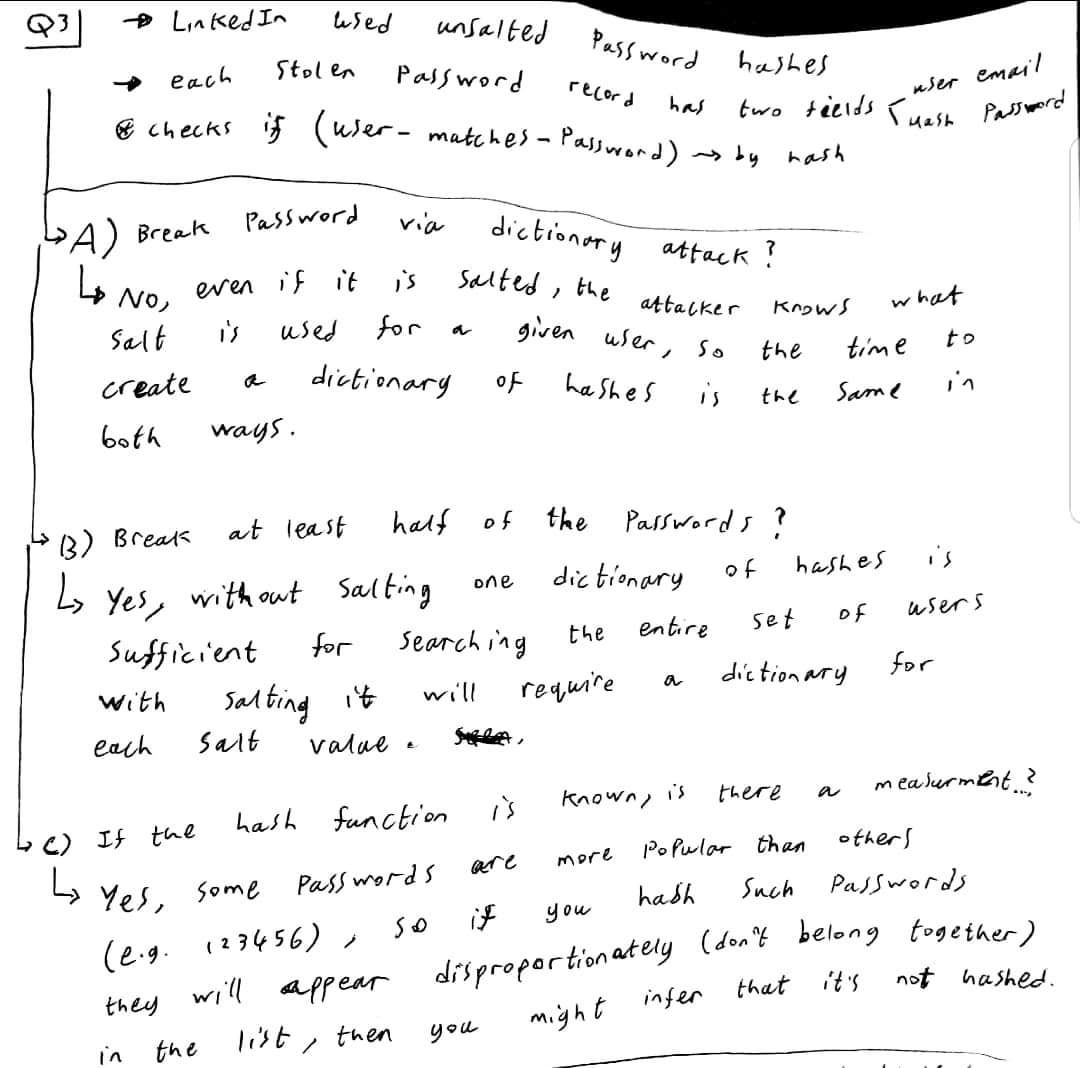 Q3 → LinkedIn used unsalted Password hashes
→ each stolen Password record has two fields user email
Hash Password
⊛ checks if (user-matches-Password) → by hash
↳ A) Break Password via dictionary attack?
↳ No, even if it is salted, the attacker knows what
salt is used for a given user, so the time to
create a dictionary of hashes is the same in
both ways.
↳ B) Break at least half of the Passwords?
↳ Yes, without salting one dictionary of hashes is
sufficient for searching the entire set of users
with salting it will require a dictionary for
each salt value.
↳ C) If the hash function is known, is there a measurment..?
↳ Yes, some Passwords are more Popular than others
(e.g. 123456), so if you hash such Passwords
they will appear disproportionately (don't belong together)
in the list, then you might infer that it's not hashed.